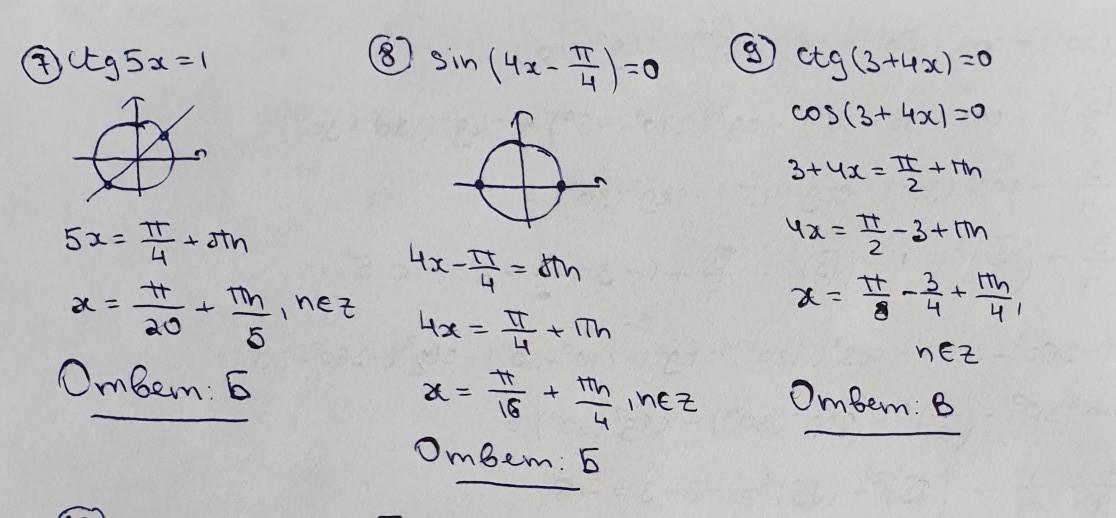 7 ctg5x=1
5x = π/4 + πn
x = π/20 + πn/5, n∈Z
Ответ: Б
8 sin(4x - π/4)=0
4x - π/4 = πn
4x = π/4 + πn
x = π/16 + πn/4, n∈Z
Ответ: Б
9 ctg(3+4x)=0
cos(3+4x)=0
3+4x = π/2 + πn
4x = π/2 - 3 + πn
x = π/8 - 3/4 + πn/4,
n∈Z
Ответ: В